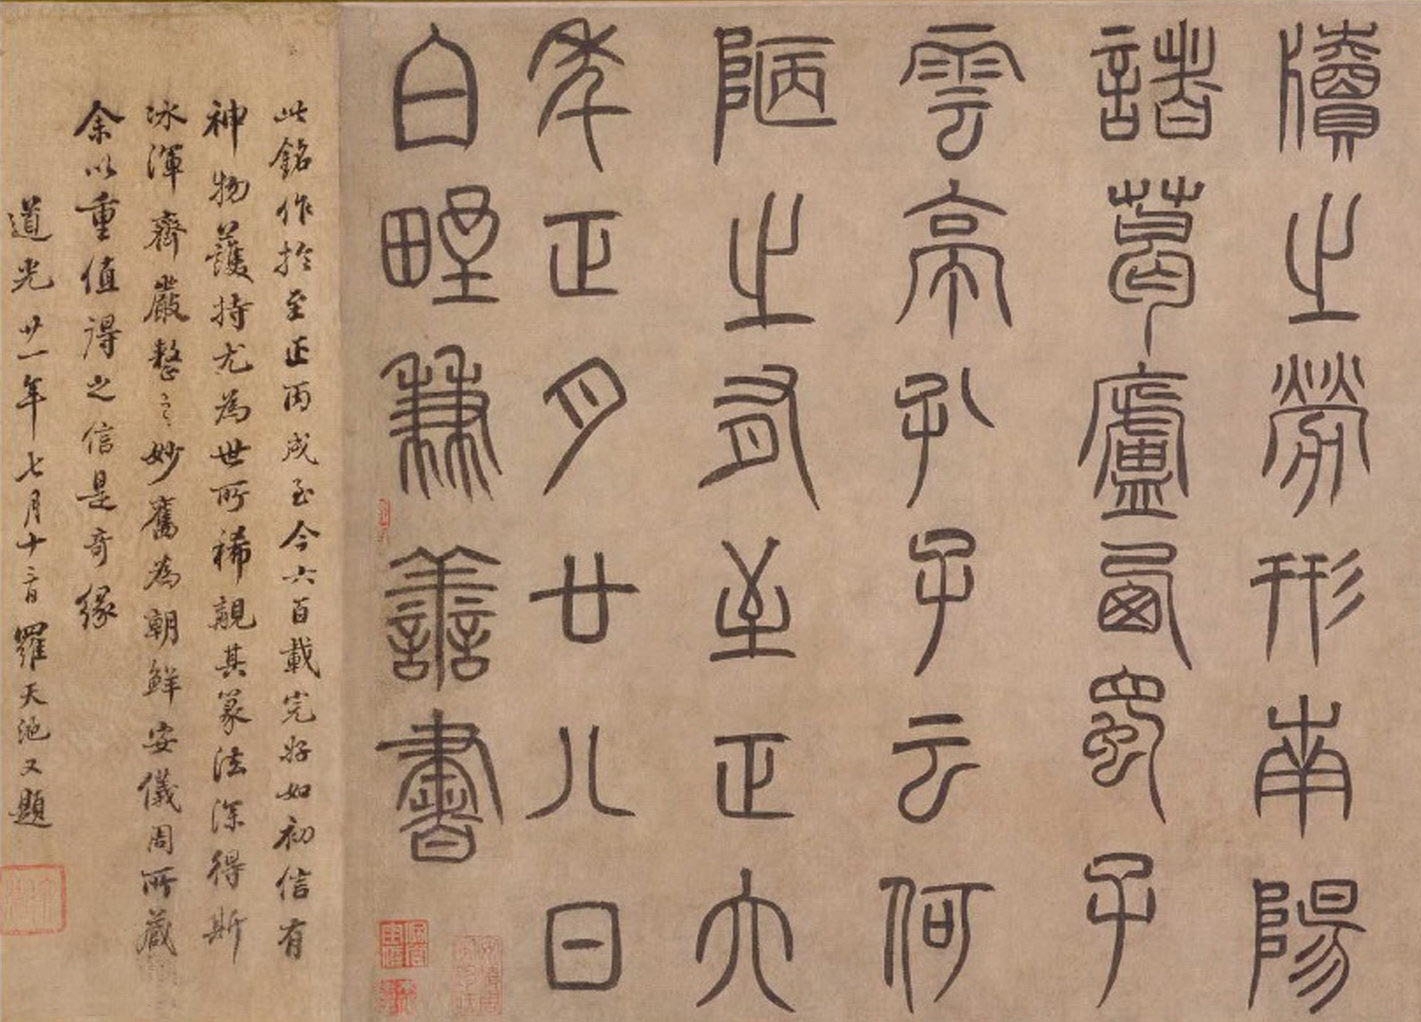 牘之勞形南陽
諸葛廬西蜀子
雲亭孔子云何
陋之有至正六
年正月廿八日
白野兼善書
此銘作於至正丙戌至今六百載完好如初信有
神物護持尤為世所稀覯其篆法深得斯
冰渾齊嚴整之妙舊為朝鮮安儀周所藏
余以重值得之信是奇緣
道光廿一年七月十二日羅天池又題